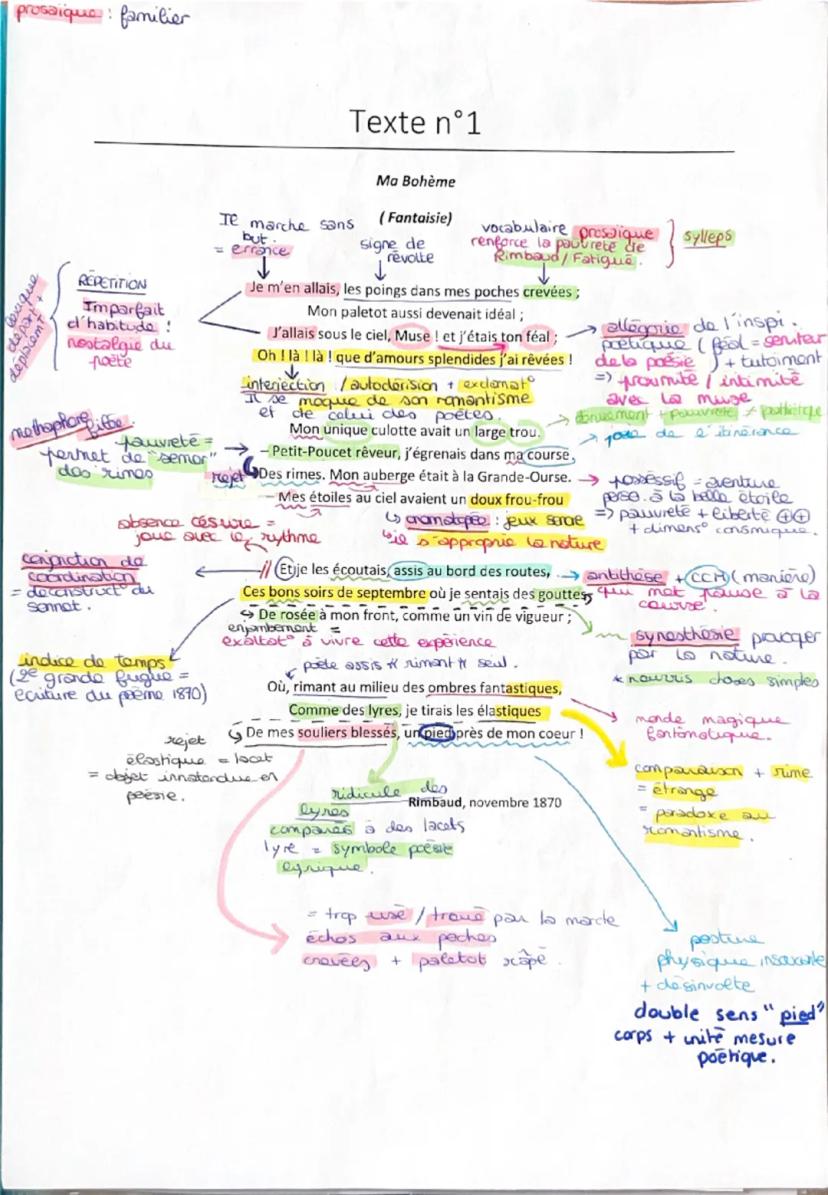 prosaïque : familier
Texte n°1
Ma Bohème
(Fantaisie)
Il marche sans
but.
= errance
signe de
révolte
vocabulaire prosaïque
renforce la pauvreté de
Rimbaud / Fatigué.
sylleps
Je m'en allais, les poings dans mes poches crevées ;
Mon paletot aussi devenait idéal ;
J'allais sous le ciel, Muse ! et j'étais ton féal ;
Oh ! là ! là ! que d'amours splendides j'ai rêvées !
lexique
départ +
RÉPETITION
Imparfait
d'habitude !
nostalgie du
poète
allégorie de l'inspi.
poétique (féal = serviteur
de la poésie) + tutoiment
=> proximité / intimité
avec la muse
interjection / autodérision + exclamat°
Il se moque de son romantisme
et de celui des poètes.
Mon unique culotte avait un large trou.
– Petit-Poucet rêveur, j'égrenais dans ma course
Des rimes. Mon auberge était à la Grande-Ourse.
– Mes étoiles au ciel avaient un doux frou-frou
dénuement + pauvreté ≠ pathétique
joie de l'itinérance
methaphore filée
pauvreté =
permet de "semer"
des rimes
rejet
possessif = aventure
perso. à la belle étoile
=> pauvreté + liberté ⊕⊕
+ dimens° cosmique.
absence césure =
joue avec le rythme
onomatopée : jeux sonore
il s'approprie la nature
conjonction de
coordination
= deconstruct° du
sonnet.
// Et je les écoutais, assis au bord des routes,
Ces bons soirs de septembre où je sentais des gouttes
De rosée à mon front, comme un vin de vigueur ;
antithèse + CCM (manière)
qui met pause à la
course.
enjambement =
exaltat° à vivre cette expérience
synesthésie
par la nature.
* nourris choses simples
indice de temps
(2e grande fugue =
écriture du poème 1870)
poète assis * riment * seul.
Où, rimant au milieu des ombres fantastiques,
Comme des lyres, je tirais les élastiques
De mes souliers blessés, un pied près de mon coeur !
monde magique
fantomatique.
rejet
élastique = lacet
= objet innatendue en
poésie.
comparaison + rime
= étrange
= paradoxe au
romantisme.
Rimbaud, novembre 1870
ridicule des
lyres
comparés à des lacets
lyre = symbole poésie
lyrique.
= trop usé / troué par la marche
échos aux poches
crevées + paletot rapé.
posture
physique insouciante
+ désinvolte
double sens "pied"
corps + unité mesure
poétique.